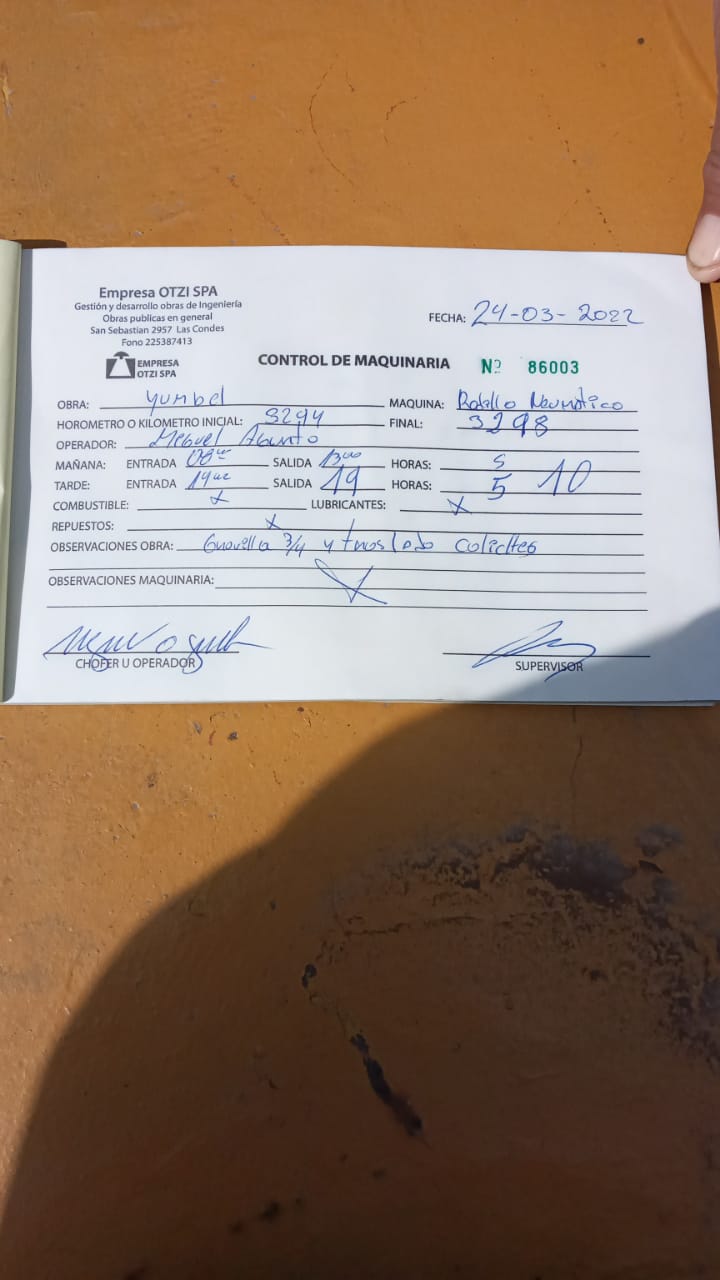 Empresa OTZI SPA
Gestión y desarrollo obras de Ingeniería
Obras publicas en general
San Sebastian 2957 Las Condes
Fono 225387413
EMPRESA
OTZI SPA
FECHA: 24-03-2022
CONTROL DE MAQUINARIA Nº 86003
OBRA: Yumbel MAQUINA: Rodillo Neumático
HOROMETRO O KILOMETRO INICIAL: 3294 FINAL: 3298
OPERADOR: Miguel
MAÑANA: ENTRADA 08 SALIDA 13 00 HORAS: 5
TARDE: ENTRADA 14 SALIDA 19 HORAS: 5 10
COMBUSTIBLE: x LUBRICANTES: x
REPUESTOS: x
OBSERVACIONES OBRA: Gravilla 3/4 y traslado
OBSERVACIONES MAQUINARIA: x
CHOFER U OPERADOR SUPERVISOR